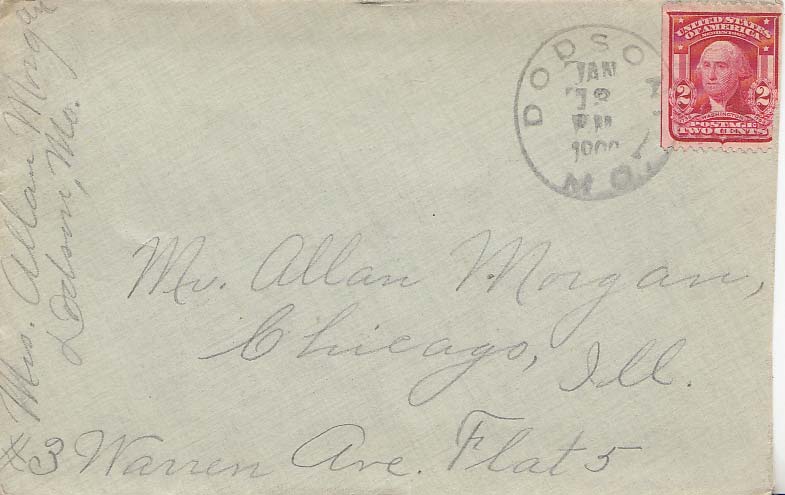 Mrs. Allan Morgan
Dodson, Mo.
DODSON
JAN
19
PM
MO.
UNITED STATES
OF AMERICA
2 2
WASHINGTON
POSTAGE
TWO CENTS
Mr. Allan Morgan,
Chicago, Ill.
3 Warren Ave. Flat 5